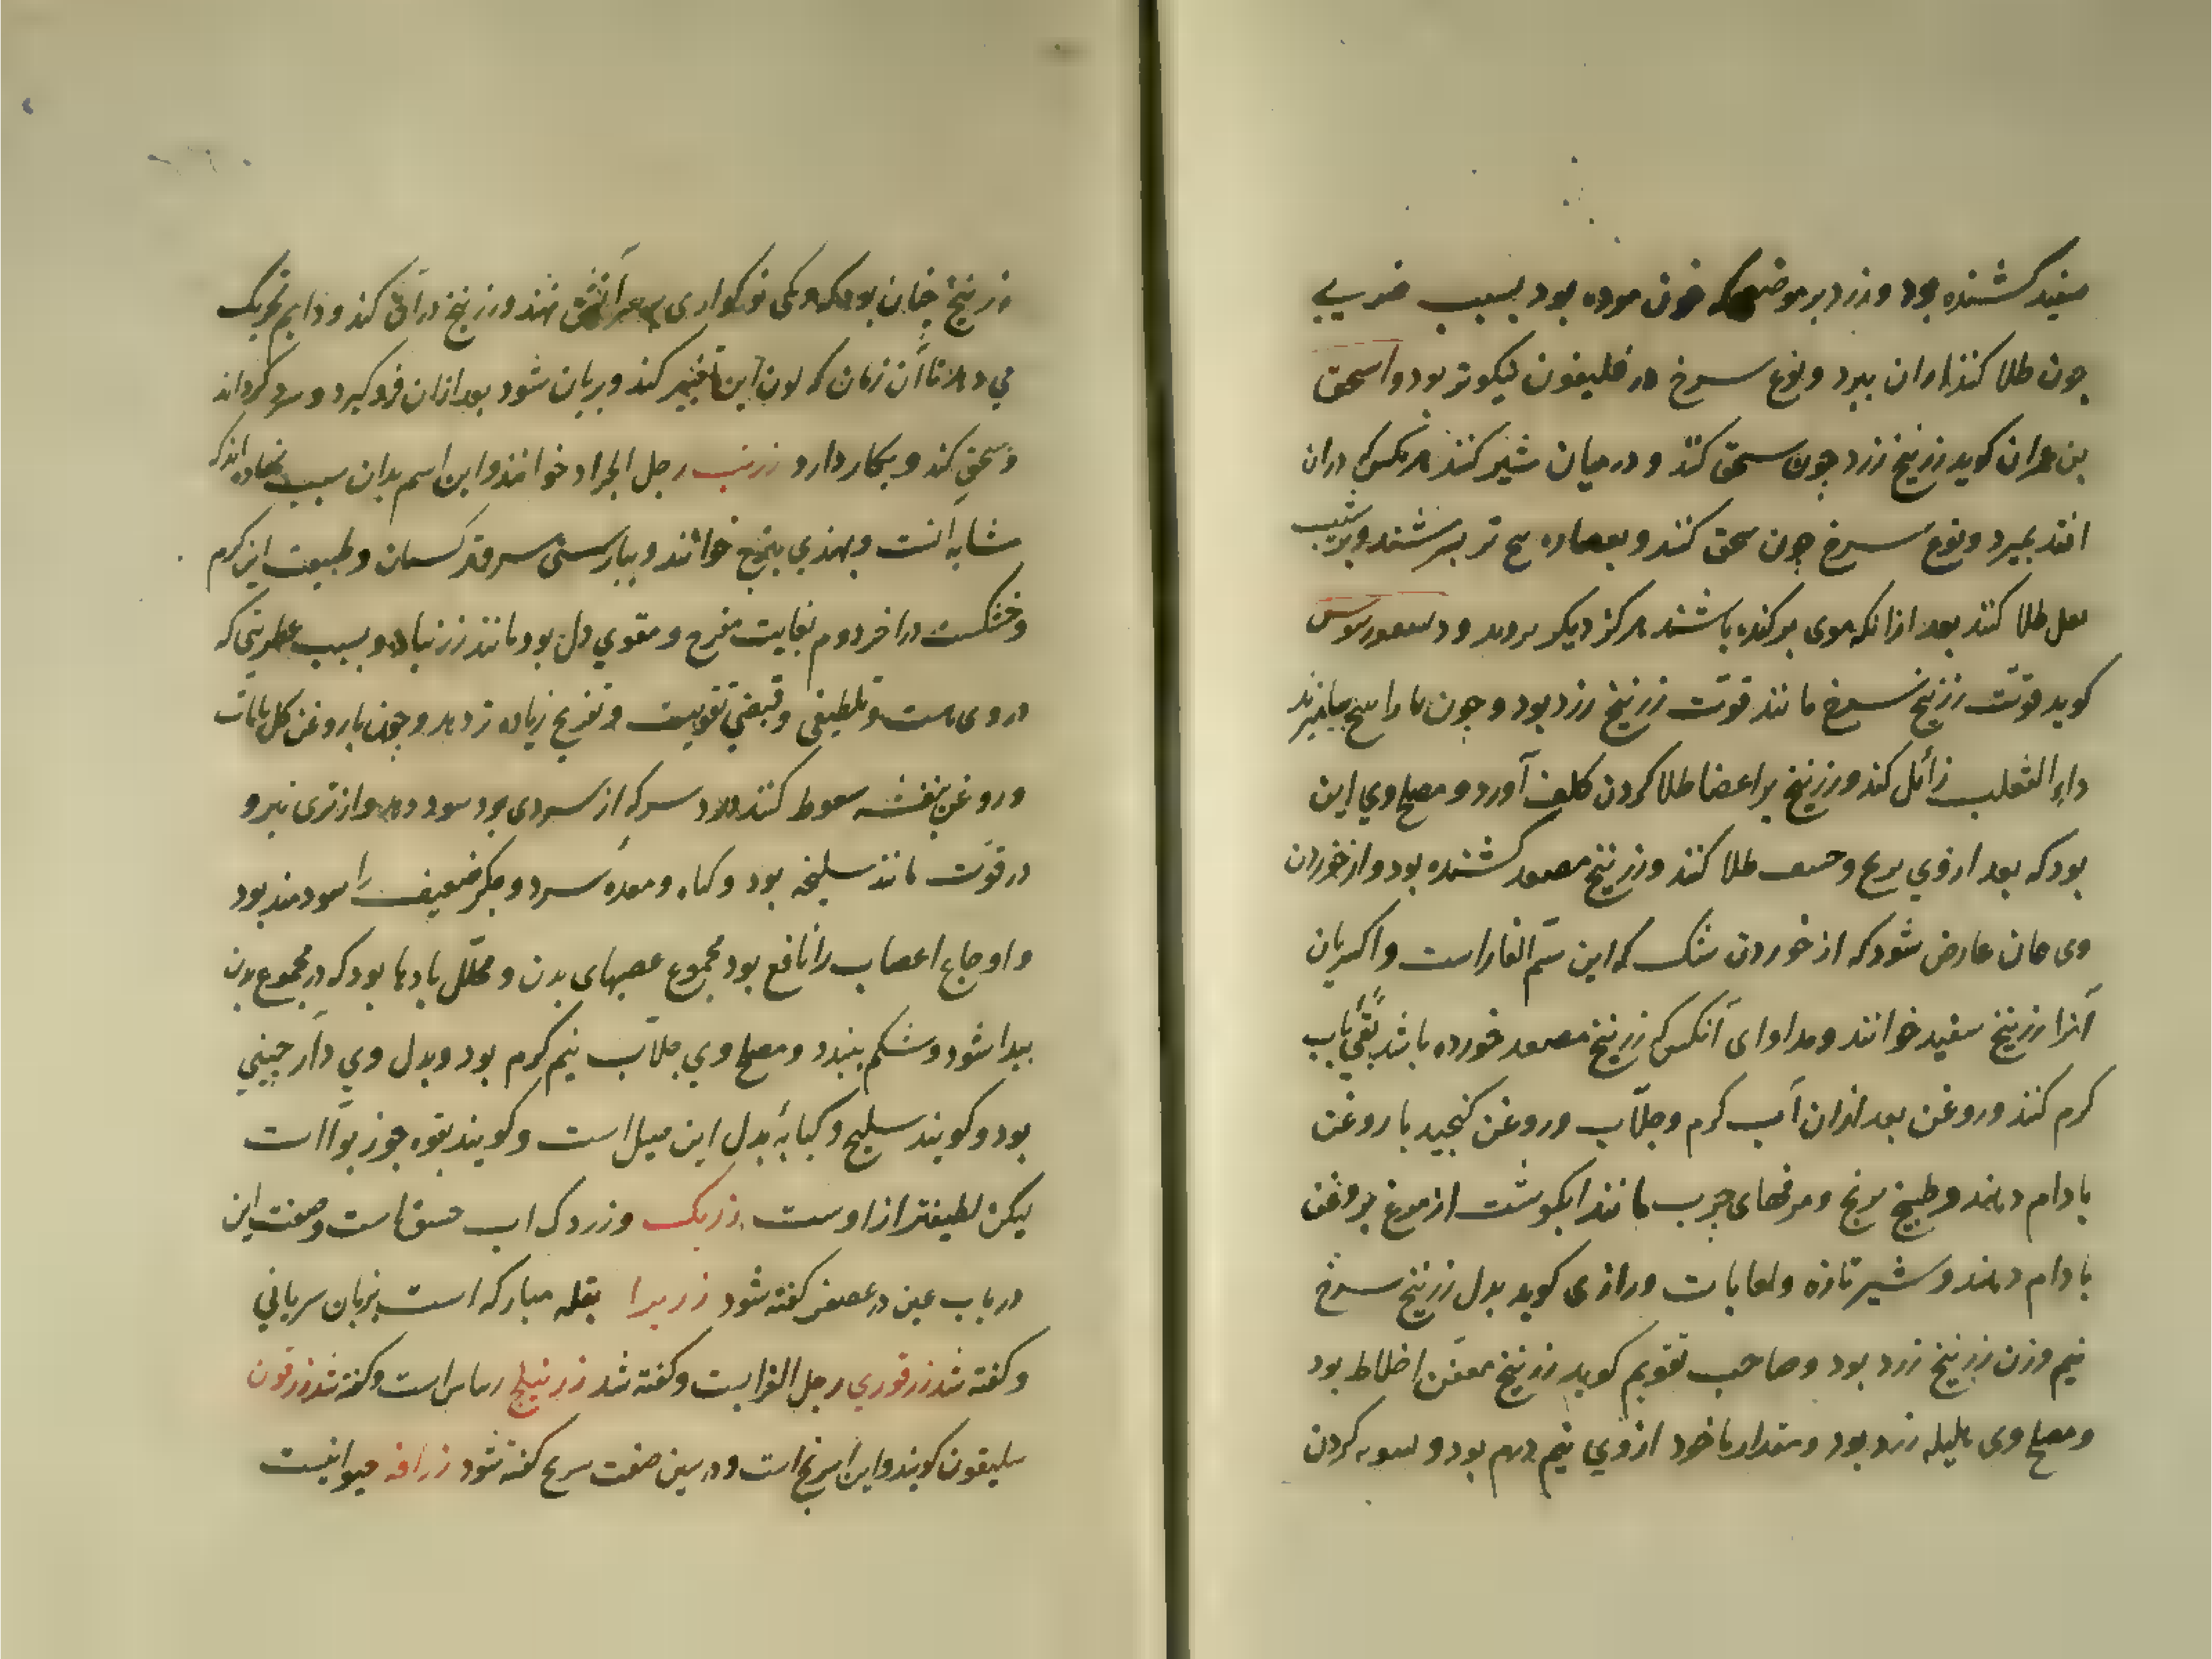 سفید کشنده بود و زرد بر موضعی که خون مرده بود بسبب ضربی
چون طلا کنند اران ببرد و نوع سرخ در فلیفون نیکوتر بود و اسحق
بن عمران کوید زرنیخ زرد چون سحق کنند و در میان شیر کنند هر مکس که دران
افتد بمیرد و نوع سرخ چون سحق کنند و بعصاره بنج تر بسرشند و بر شیب
بغل طلا کنند بعد ازانکه موی برکنده باشند هرکز دیکر نروید و دیسقوریدوس
کوید قوّت زرنیخ سرخ مانند قوّت زرنیخ زرد بود و چون با راتینج بیامیزند
داء الثعلب زائل کند و زرنیخ بر اعضا طلا کردن کلف آورد و مصلح وی این
بود که بعد از وی برنج و طلا کنند و زرنیخ مصعد کشنده بود و از خوردن
وی همان عارض شود که از خوردن شک که این سمّ الفار است و اکسریان
آنرا زرنیخ سفید خوانند و مداوای آنکس که زرنیخ مصعد خورده باشد بقیّ باب
کرم کنند و روغن بعد ازان آب کرم و جلّاب و روغن کنجید یا روغن
بادام دهند و طبیخ برنج و مرقهای چرب مانند ابکوشت از مرغ بروغن
بادام دهند و شیر تازه و لعابات و رازی کوید بدل زرنیخ سرخ
نیم وزن زرنیخ زرد بود و صاحب تقویم کوید زرنیخ معفّن اخلاط بود
و مصلح وی هلیله زرد بود و مقدار ماخود ازوی نیم درم بود و تسویه کردن
زرنیخ چنان بود که وکی نو کواری بر سر آتش نهند و زرنیخ دران کند و دایم تحریک
می دهد تا آن زمان که لون این تغییر کند و بریان شود بعد ازان فرو کیرد و سرد کرداند
و سحق کند و بکار دارد زرنب رجل الجراد خوانند و این اسم بدان سبب نهاده اند که
مشابه آنست و بهندی خوانند و بپارسی سرو ترکستان و طبیعت این کرم
و خشکست در اخر دوم بغایت مفرح و مقوی دل بود مانند زرنباد و بسبب عطریتی که
در وی هست و تلطیفی و قبضی تقویت و تفریح زیاده تر دهد و چون با روغن کل یا باب
و روغن بنفشه سعوط کنند درد سر که از سردی بود سود دهد و از تری نیز و
در قوّت مانند سلیخه بود و کباه و معده سرد و جکر ضعیف را سودمند بود
و اوجاع اعصاب را نافع بود مجموع عصبهای بدن و محلّل بادها بود که در مجموع بدن
پیدا شود و شکم ببندد و مصلح وی جلّاب نیم کرم بود و بدل وی دار چینی
بود و کویند سلیخ و کبابه بدل این میل است و کویند بقوه جوز بوّا است
لیکن لطیفتر از اوست زریک و زردک اب است و صفت این
در باب عین در عصفر کفته شود زریرا بقله مبارکه است بزبان سریانی
و کفته شد زرقوری رجل الغرابست و کفته شد زرنیلج ریباس است و کفته شد زرقون
سلیقون کویند و این اسرنج است و در سین صفت سرنج کفته شود زرافه حیوانیست